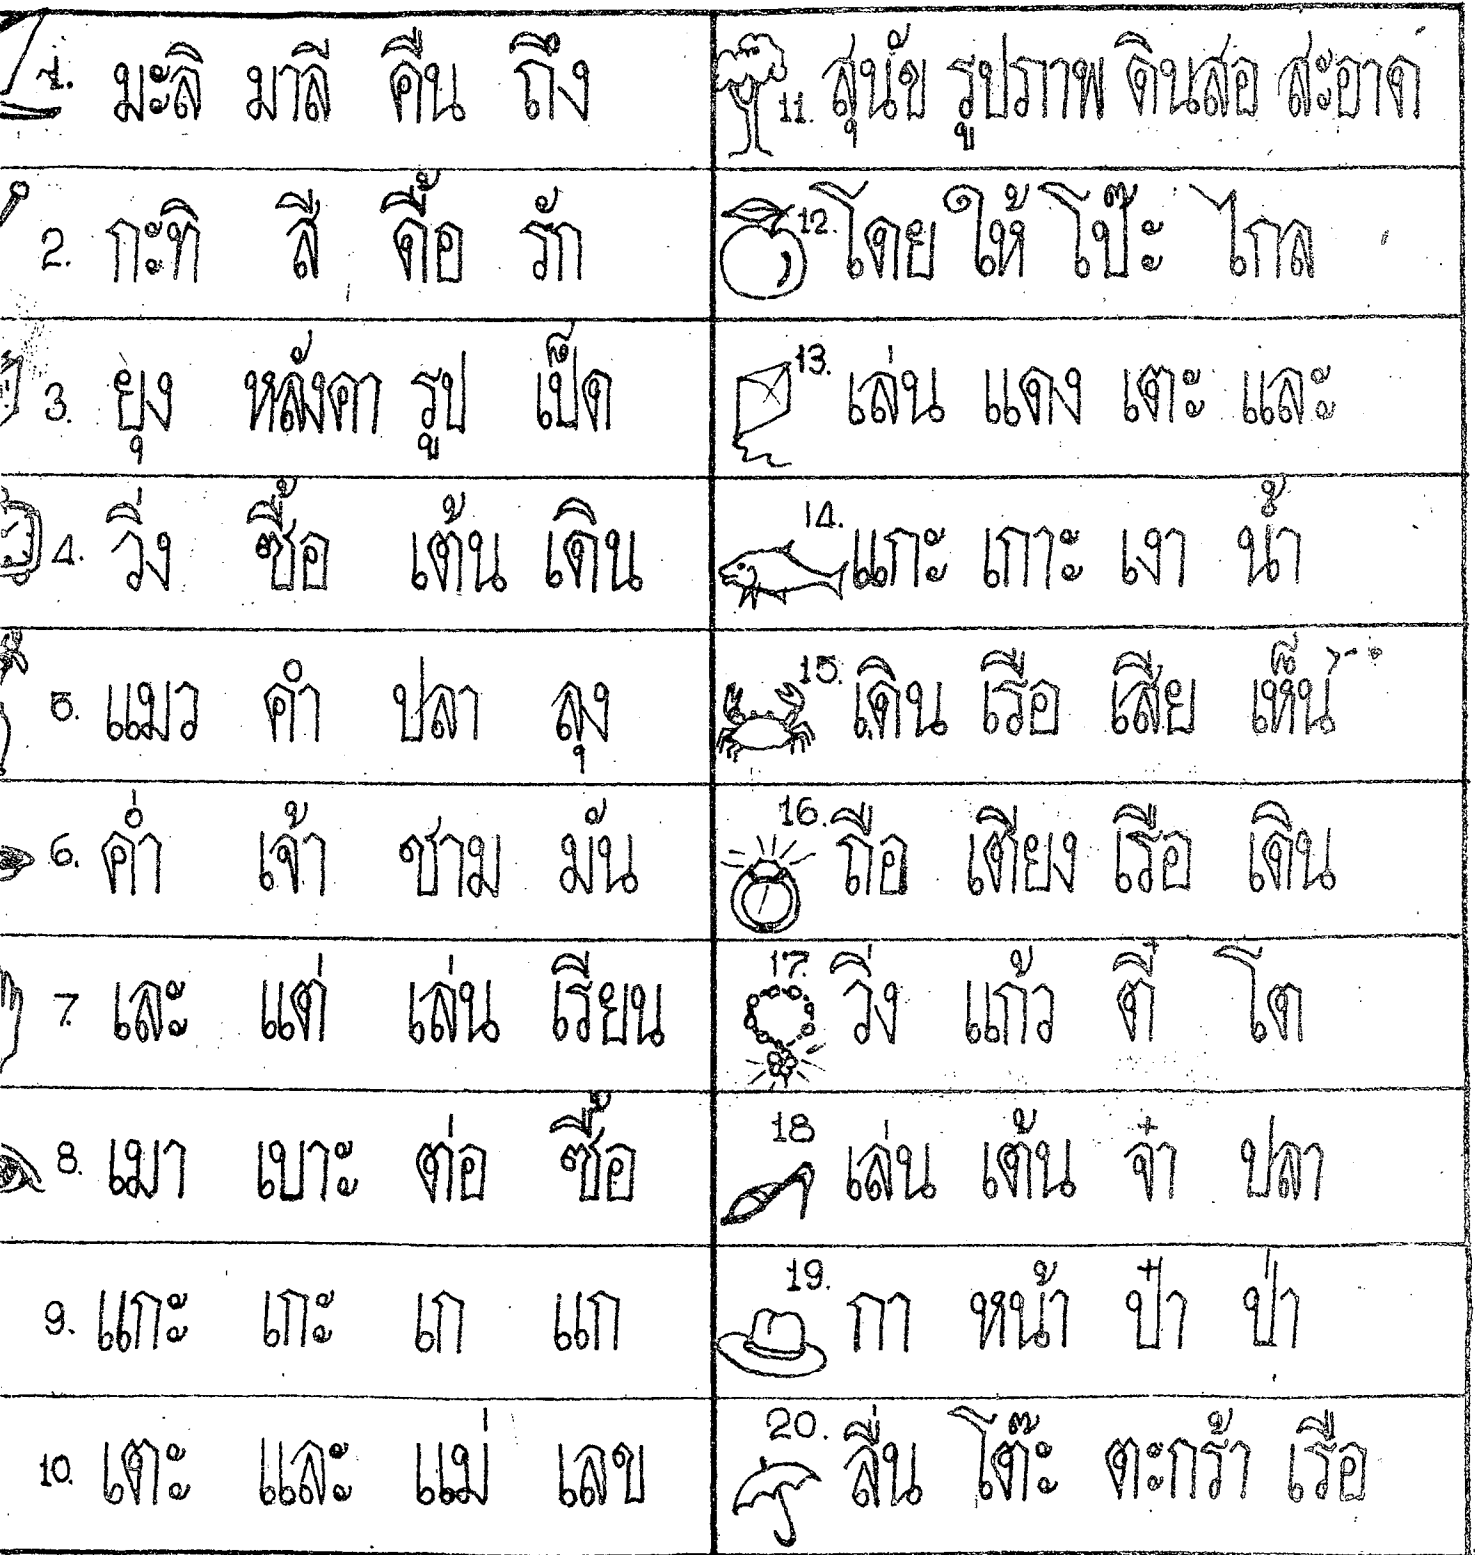 1. มะลิ มาลี คืน ถึง
2. กะทิ สี ดื้อ รัก
3. ยุง หลังคา รูป เป็ด
4. วิ่ง ซื้อ เต้น เดิน
5. แมว คำ ปลา ลุง
6. ค่ำ เจ้า ชาม มัน
7. เละ แต่ เล่น เรียน
8. เมา เบาะ ต่อ ซื้อ
9. แกะ เกะ เก แก
10. เตะ และ แม่ เลข
11. สุนัข รูปภาพ ดินสอ สะอาด
12. โดย ให้ โป๊ะ ไกล
13. เล่น แดง เตะ และ
14. แกะ เกาะ เงา น้ำ
15. เดิน เรือ เสีย เห็น
16. ถือ เตียง เรือ เดิน
17. วิ่ง แก้ว ตี๋ โต
18 เล่น เต้น จ๋า ปลา
19. กา หน้า ป๋า ป่า
20. ลื่น โต๊ะ ตะกร้า เรือ